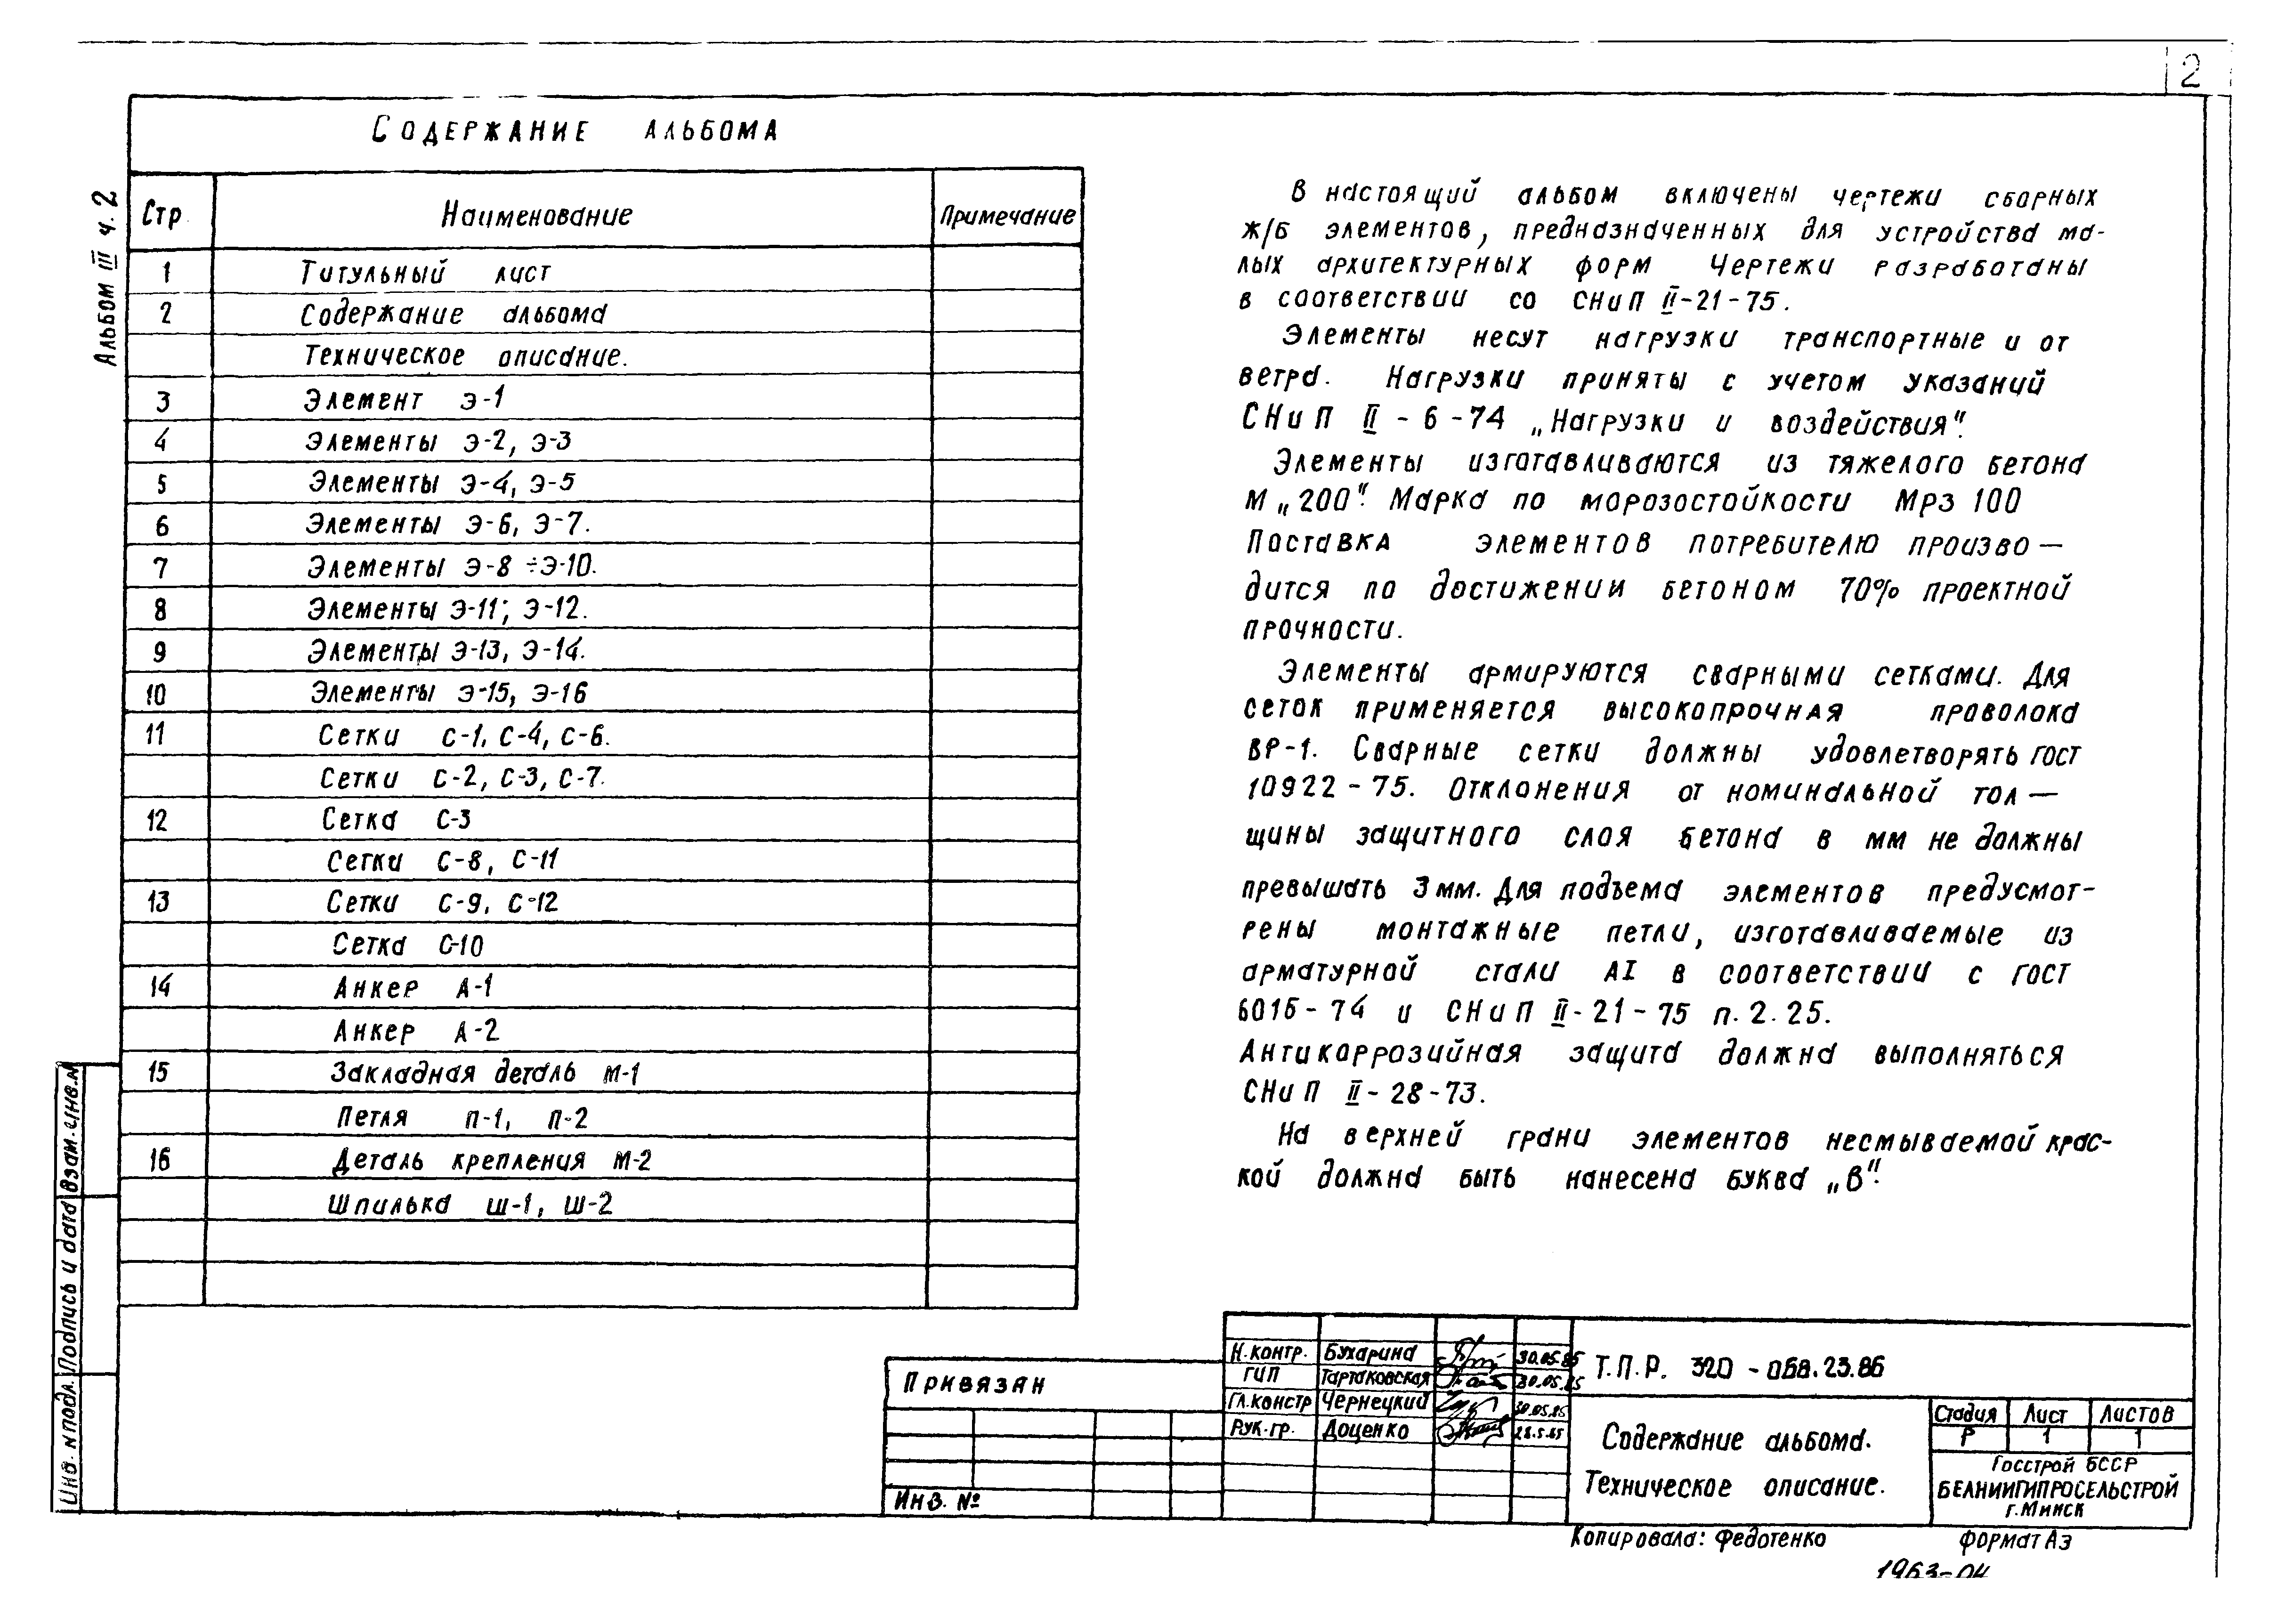 2
Содержание альбома
Альбом III ч. 2
Стр. Наименование Примечание
1 Титульный лист
2 Содержание альбома
Техническое описание.
3 Элемент Э-1
4 Элементы Э-2, Э-3
5 Элементы Э-4, Э-5
6 Элементы Э-6, Э-7.
7 Элементы Э-8 ÷Э-10.
8 Элементы Э-11; Э-12.
9 Элементы Э-13, Э-14.
10 Элементы Э-15, Э-16
11 Сетки С-1, С-4, С-6.
Сетки С-2, С-3, С-7.
12 Сетка С-3
Сетки С-8, С-11
13 Сетки С-9, С-12
Сетка С-10
14 Анкер А-1
Анкер А-2
15 Закладная деталь М-1
Петля П-1, П-2
16 Деталь крепления М-2
Шпилька Ш-1, Ш-2
В настоящий альбом включены чертежи сборных
ж/б элементов, предназначенных для устройства ма-
лых архитектурных форм Чертежи разработаны
в соответствии со СНиП II-21-75.
Элементы несут нагрузки транспортные и от
ветра. Нагрузки приняты с учетом указаний
СНиП II-6-74 „Нагрузки и воздействия".
Элементы изготавливаются из тяжелого бетона
М „200". Марка по морозостойкости Мрз 100
Поставка элементов потребителю произво—
дится по достижении бетоном 70% проектной
прочности.
Элементы армируются сварными сетками. Для
сеток применяется высокопрочная проволока
ВР-1. Сварные сетки должны удовлетворять ГОСТ
10922-75. Отклонения от номинальной тол—
щины защитного слоя бетона в мм не должны
превышать 3 мм. Для подъема элементов предусмот-
рены монтажные петли, изготавливаемые из
арматурной стали АI в соответствии с ГОСТ
6015-74 и СНиП II-21-75 п. 2.25.
Антикоррозийная защита должна выполняться
СНиП II-28-73.
На верхней грани элементов несмываемой крас-
кой должна быть нанесена буква „В".
Инв. № подл. Подпись и дата Взам. инв. №
Привязан
Инв. №
Н.контр. Бухарина 30.05.85
ГИП Тартаковская 30.05.85
Гл.констр Чернецкий 30.05.85
Рук.гр. Доценко 28.5.85
Т.П.Р. 320-068.23.86
Содержание альбома.
Техническое описание.
Стадия Лист Листов
Р 1 1
Госстрой БССР
БЕЛНИИГИПРОСЕЛЬСТРОЙ
г.Минск
Копировала: Федотенко Формат А3
1963-04